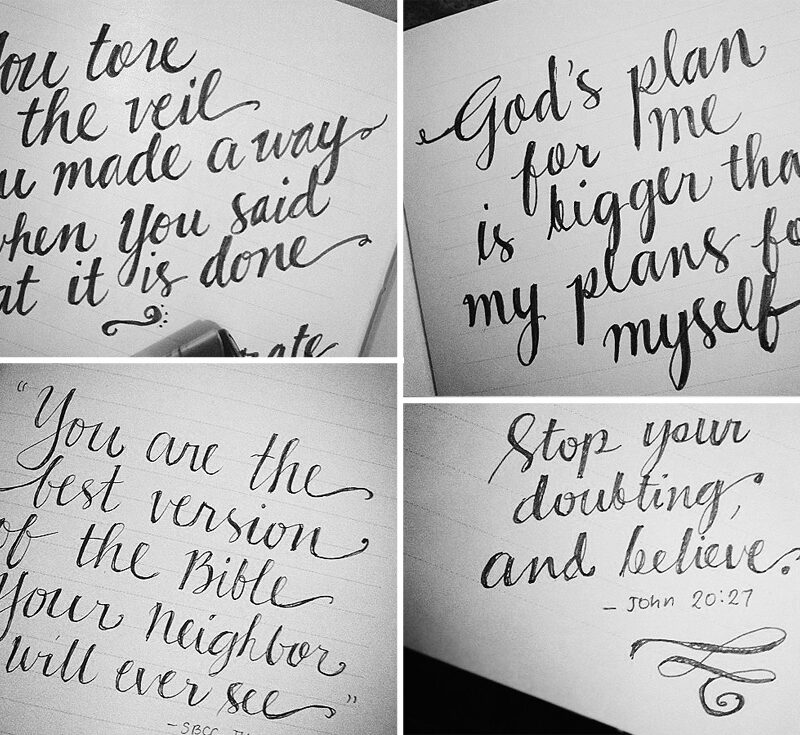 You tore
the veil
made a way
when You said
it is done
God's plan
for me
is bigger
my plans
myself
"You are the
best version
of the Bible
Your neighbor
will ever see"
- SBCC
Stop your
doubting,
and believe.
- John 20:27